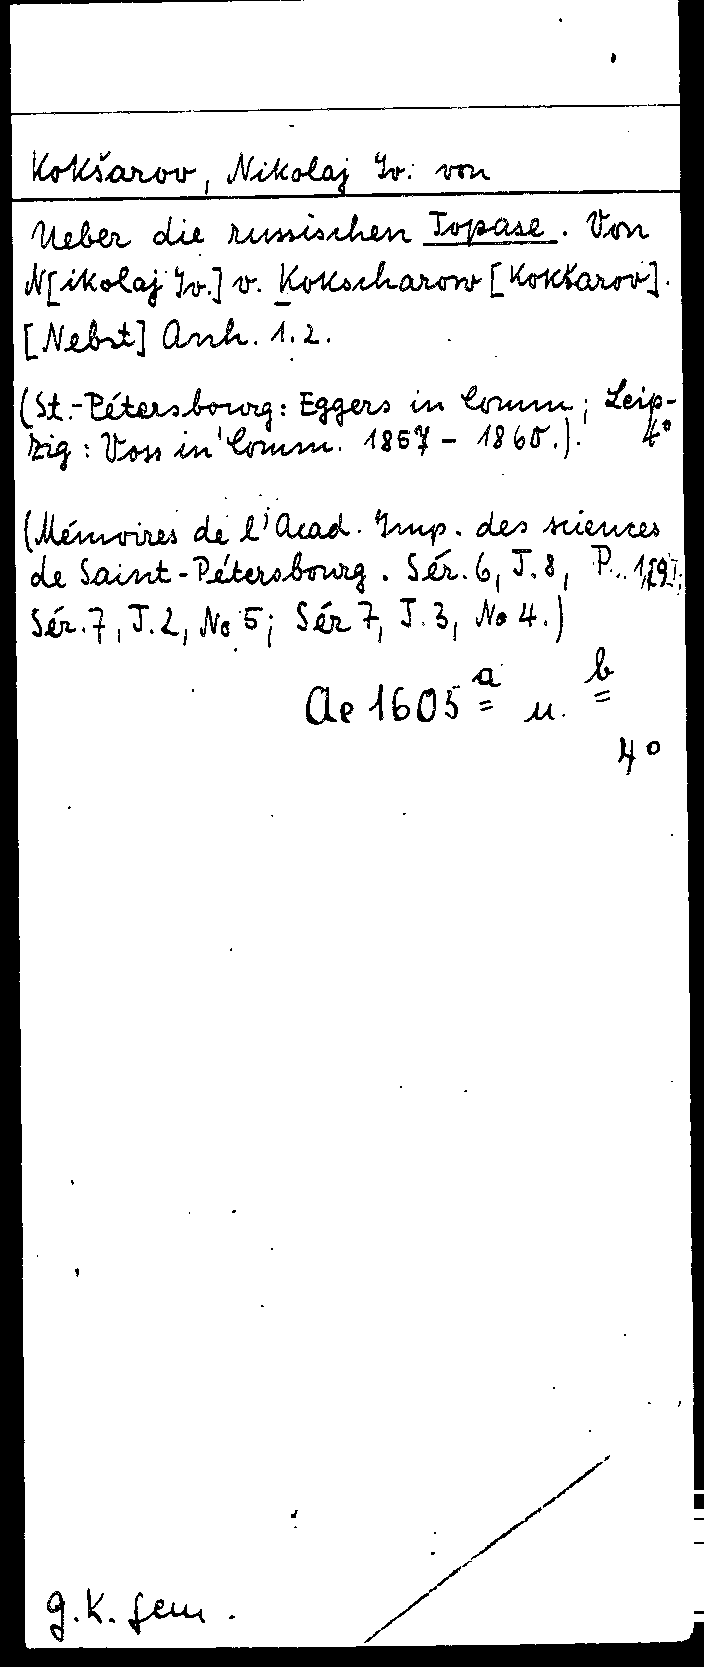 Kokšarov, Nikolaj Iv. von
Ueber die russischen Topase. Von
N[ikolaj Iv.] v. Kokscharow [Kokšarov].
[Nebst] Anh. 1.2.
(St.-Pétersbourg: Eggers in Comm.; Leip-
zig: Voss in Comm. 1857 - 1860.). 4°
(Mémoires de l'Acad. Imp. des sciences
de Saint-Pétersbourg. Sér. 6, T. 8, P.
Sér. 7, T. 2, No 5; Sér 7, T. 3, No 4.)
Ae 1605 a u. b
4°
g. K. gem.